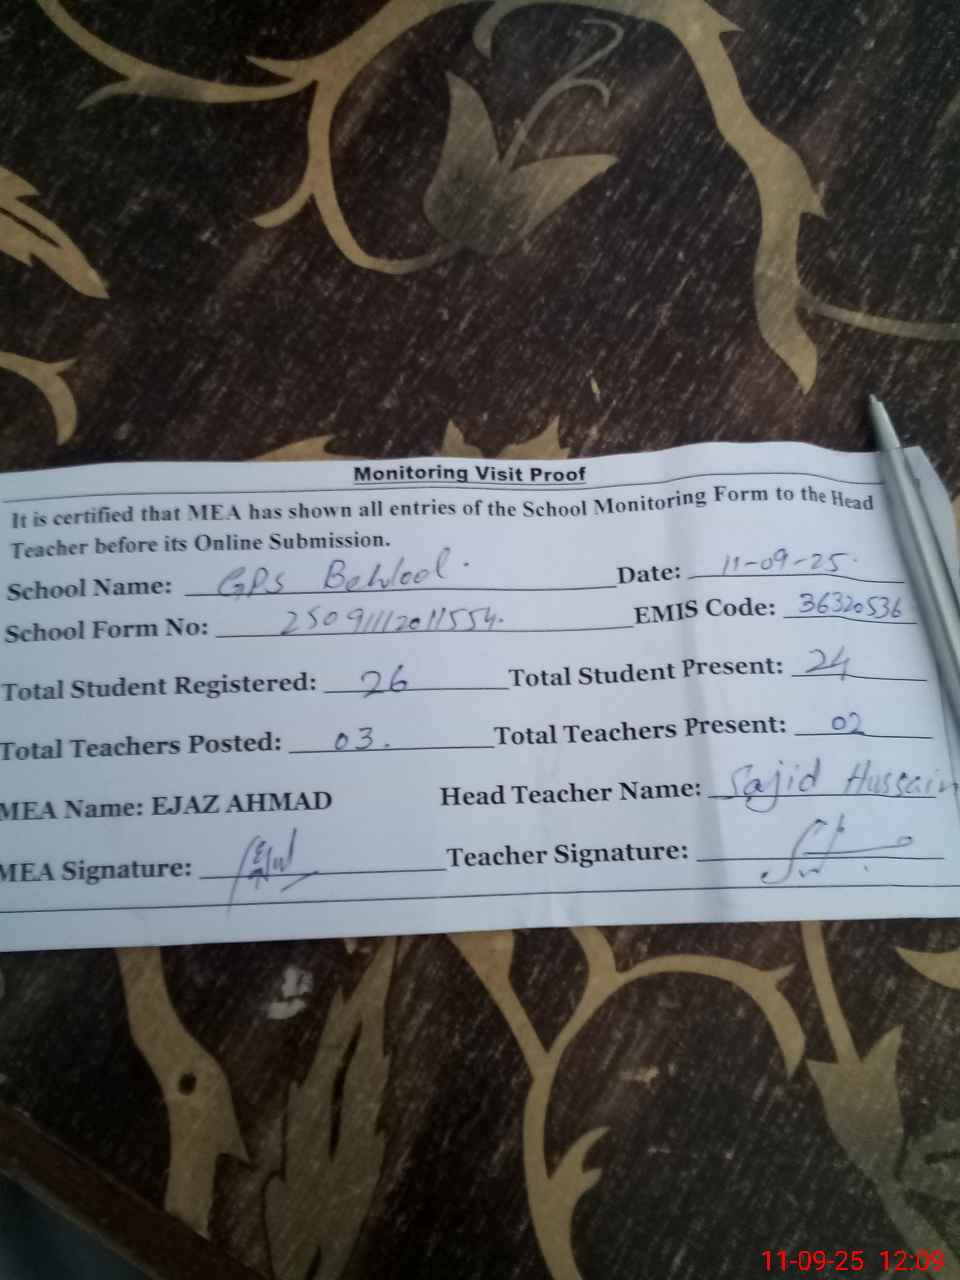 Monitoring Visit Proof
It is certified that MEA has shown all entries of the School Monitoring Form to the Head
Teacher before its Online Submission.
School Name: GPS Behlool. Date: 11-09-25.
School Form No: 25091112011554. EMIS Code: 36320536
Total Student Registered: 26 Total Student Present: 24
Total Teachers Posted: 03. Total Teachers Present: 02
MEA Name: EJAZ AHMAD Head Teacher Name: Sajid Hussain
MEA Signature: Teacher Signature:
11-09-25 12:09